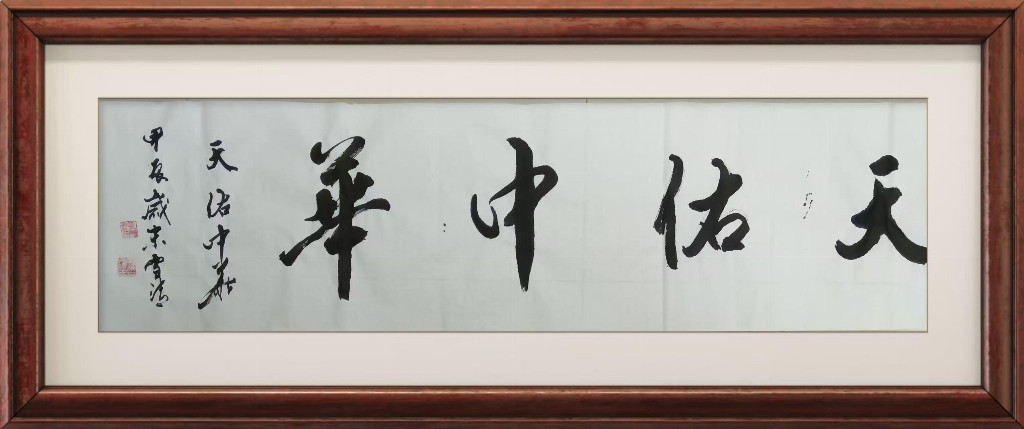 天佑中華
天佑中華
甲辰歲末雪濤